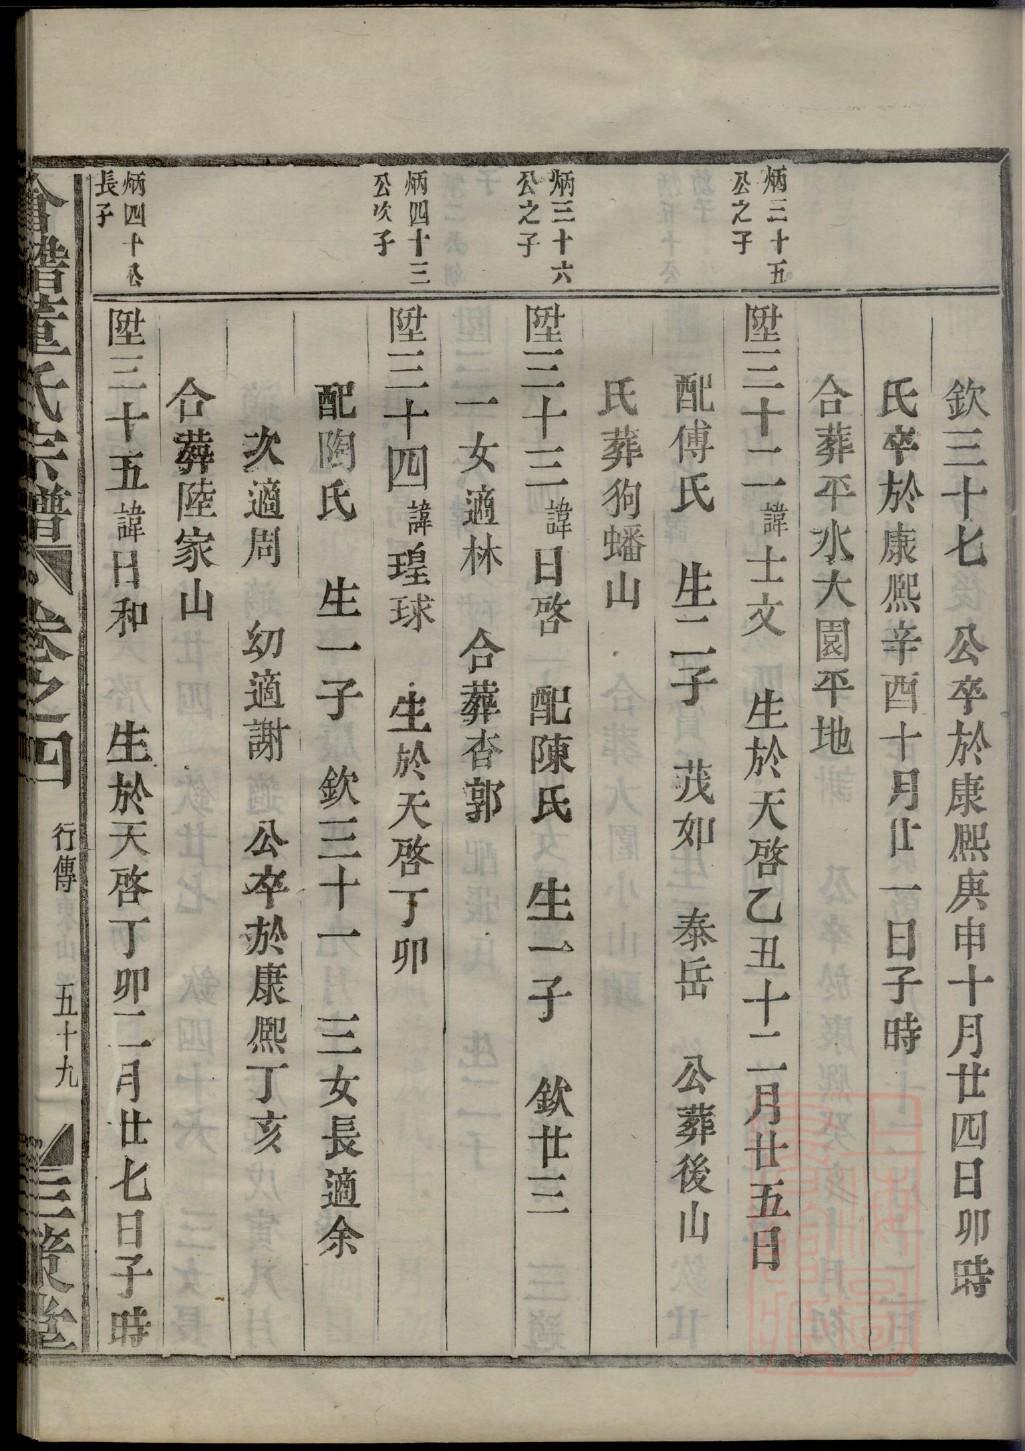 欽三十七 公卒於康熙庚申十月廿四日卯時
氏卒於康熙辛酉十月廿一日子時
合葬平水大園平地
炳三十五
公之子
陞三十二諱士文 生於天啓乙丑十二月廿五日
配傅氏 生二子 茂如 泰岳 公葬後山
氏葬狗蟠山
炳三十六
公之子
陞三十三諱日啓 配陳氏 生一子 欽廿三
一女適林 合葬杏郭
炳四十三
公次子
陞三十四諱瑝球 生於天啓丁卯
配陶氏 生一子 欽三十一 三女長適余
次適周 幼適謝 公卒於康熙丁亥
合葬陸家山
炳四十公
長子
陞三十五諱日和 生於天啓丁卯二月廿七日子時
董氏宗譜 卷之四 行傳 五十九 三策堂